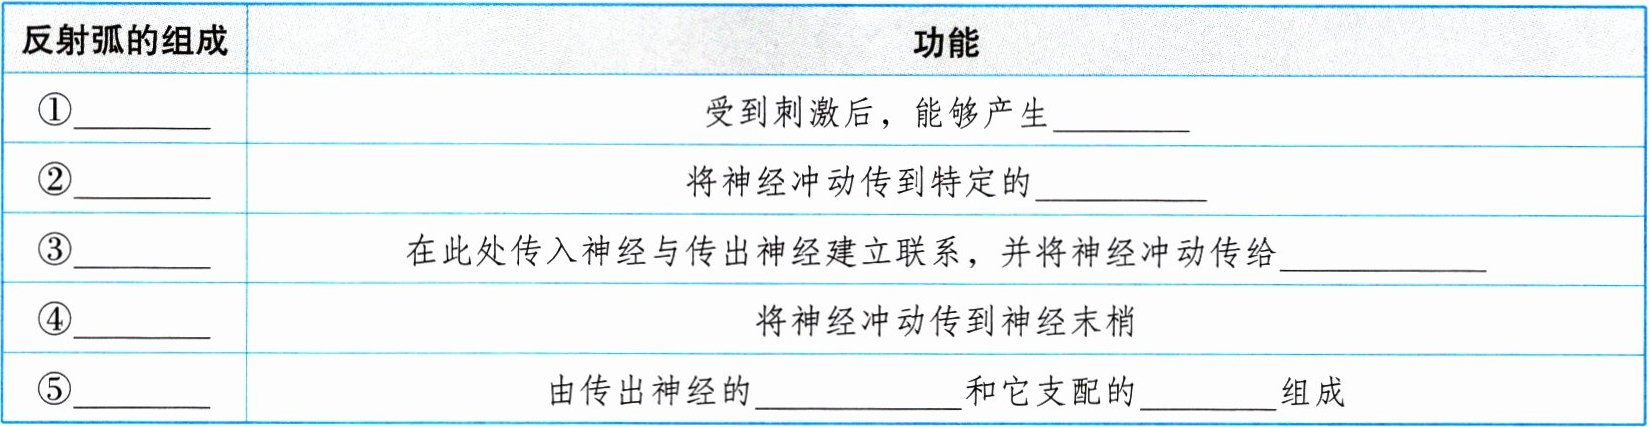 反射弧的组成 功能
①________ 受到刺激后，能够产生________
②________ 将神经冲动传到特定的__________
③________ 在此处传入神经与传出神经建立联系，并将神经冲动传给____________
④________ 将神经冲动传到神经末梢
⑤________ 由传出神经的____________和它支配的________组成